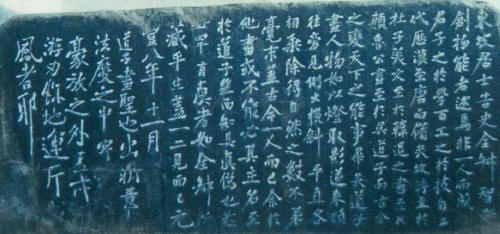 東坡居士書史全叔 智者
創物能者述焉非一人而成
君子之於學百工之於技自三
代歷漢至唐而備矣故詩至於
杜子美文至於韓退之書至於
顏魯公畫至於吳道子而古今
之變天下之能事畢矣吳道子
畫人物如以燈取影逆來順
往旁見側出橫斜平直各
相乘除得自然之數不差
毫末蓋古今一人而已余於
他畫或不能必其主名至
於道子望而知其真偽也然
世罕有真者如全叔所
藏平生蓋一二見而已元
豐八年十一月
道子畫聖也出新意
法度之中寄
豪放之外
游刃餘地運斤
風者耶